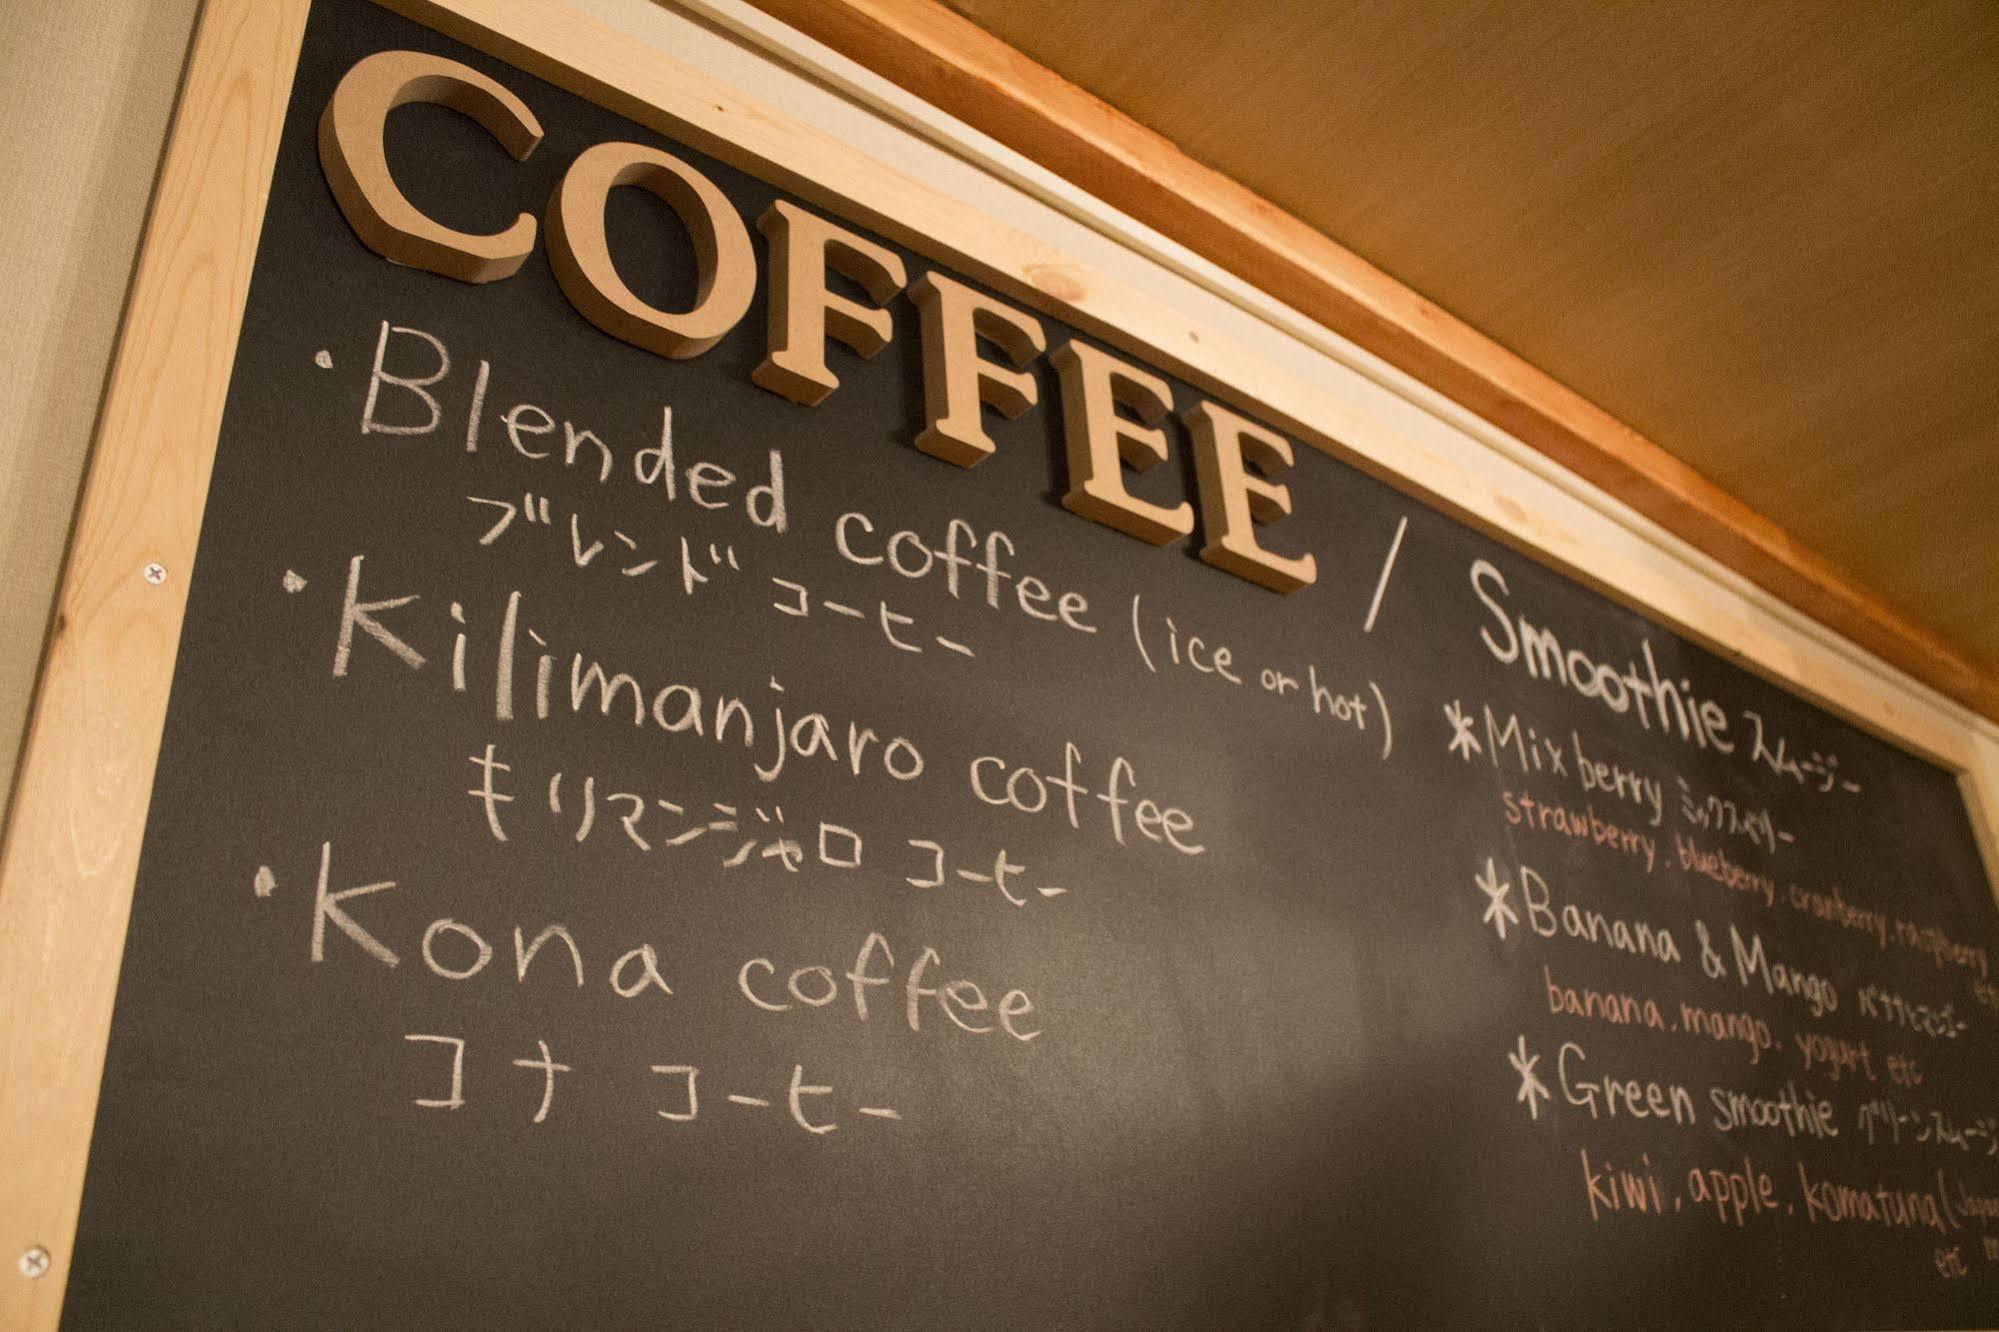 COFFEE / Smoothie スムージー
・Blended coffee (ice or hot)
ブレンド コーヒー
・Kilimanjaro coffee
キリマンジャロ コーヒー
・Kona coffee
コナ コーヒー
*Mix berry ミックスベリー
strawberry. blueberry. cranberry. raspberry
*Banana & Mango バナナ&マンゴー
banana. mango. yogurt etc
*Green smoothie グリーンスムージ
kiwi. apple. komatuna(
etc